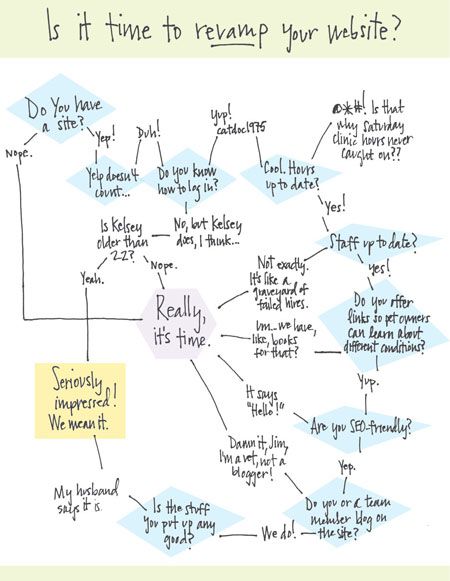 Is it time to revamp your website?
Do You have
a site?
Nope.
Yep!
Yelp doesn't
count...
Duh!
Do you know
how to log in?
Yup!
catdoc1975
Cool. Hours
up to date?
@*#! Is that
why Saturday
clinic hours never
caught on??
Yes!
No, but Kelsey
does, I think...
Is Kelsey
older than
22?
Yeah.
Nope.
Staff up to date?
Not exactly.
It's like a
graveyard of
failed hires.
yes!
Really,
it's time.
Do you offer
links so pet owners
can learn about
different conditions?
Um... we have,
like, books
for that?
Yup.
Seriously
impressed!
We mean it.
It says
"Hello!"
Are you SEO-friendly?
Yep.
Damn it, Jim,
I'm a vet, not a
blogger!
Do you or a team
member blog on
the site?
We do!
Is the stuff
you put up any
good?
My husband
says it is.